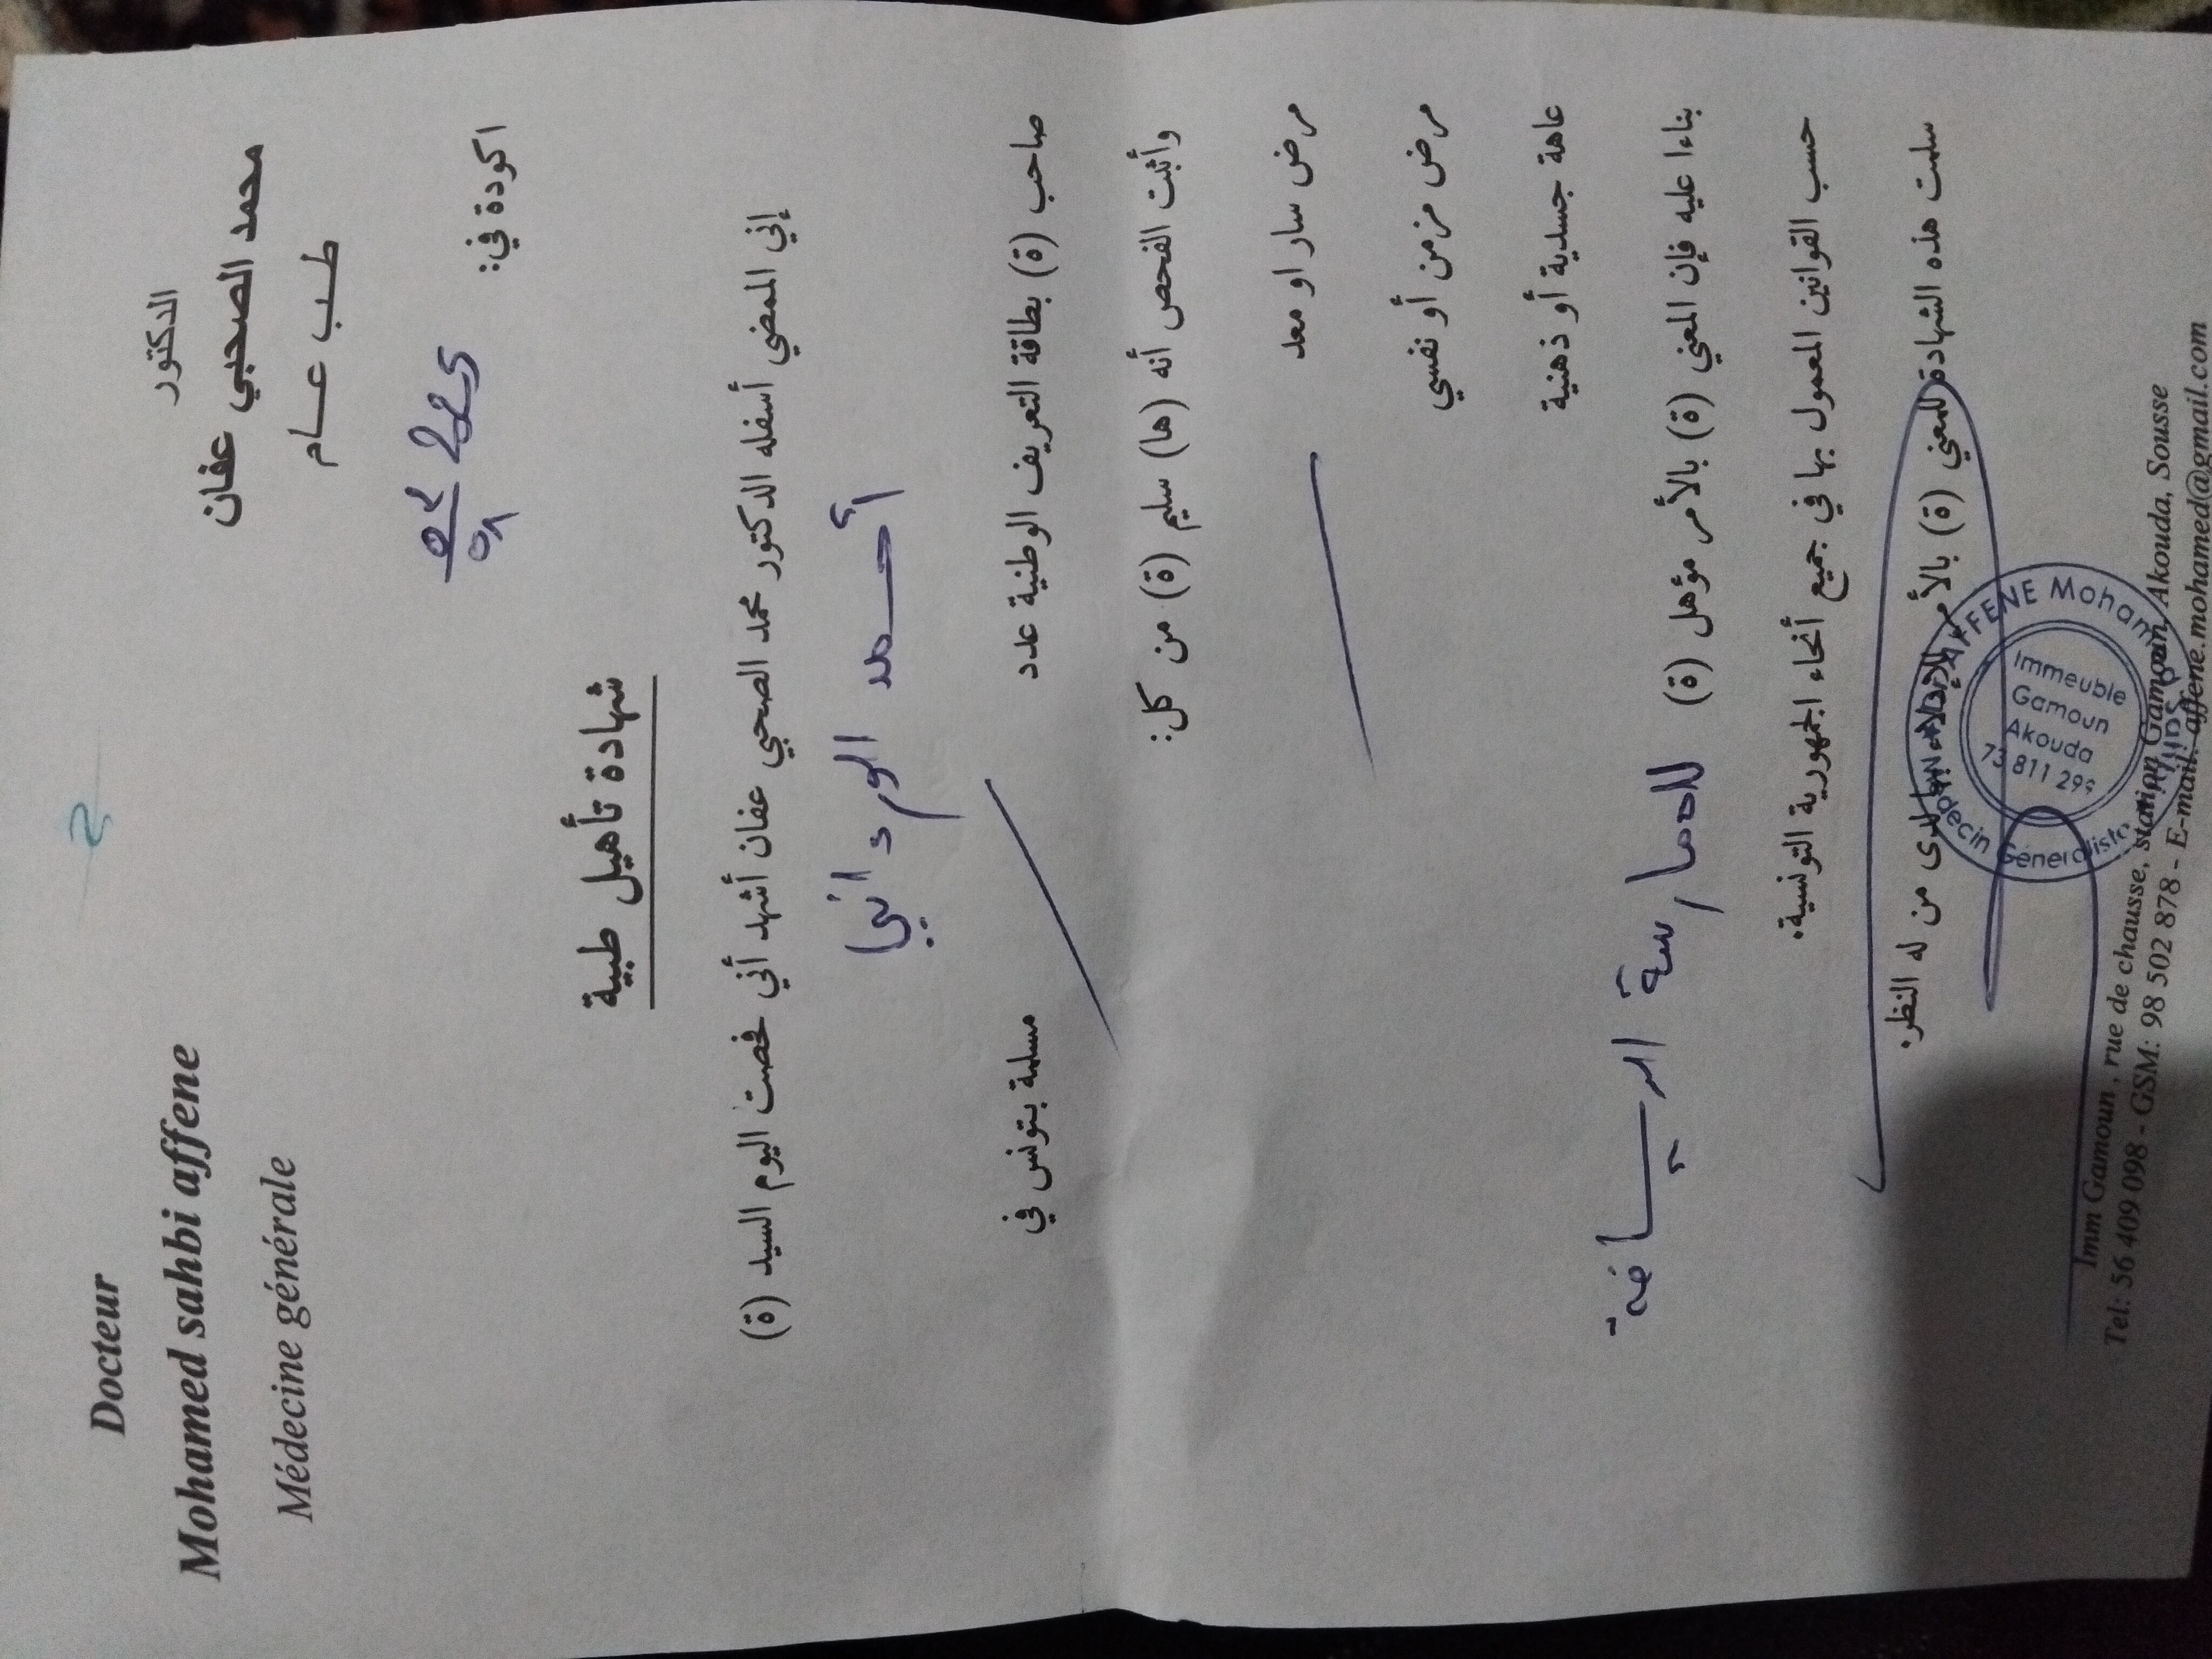 Docteur
Mohamed sahbi affene
Médecine générale
الدكتور
محمد الصحبي عفان
طب عام
اكودة في:
شهادة تأهيل طبية
إني الممضي أسفله الدكتور محمد الصحبي عفان أشهد أني فحصت اليوم السيد (ة)
أحمد الورداني
صاحب (ة) بطاقة التعريف الوطنية عدد مسلمة بتونس في
وأثبت الفحص أنه (ها) سليم (ة) من كل:
مرض سار او معد
مرض مزمن أو نفسي
عاهة جسدية أو ذهنية
بناءا عليه فإن المعني (ة) بالأمر مؤهل (ة) للممارسة الرياضة
حسب القوانين المعمول بها في جميع أنحاء الجمهورية التونسية.
سلمت هذه الشهادة للمعني (ة) بالأمر للإدلاء بها لدى من له النظر.
AFFENE Mohamed
Immeuble
Gamoun
Akouda
73 811 299
Médecin Généraliste
Imm Gamoun, rue de chausse, station Gamoun, Akouda, Sousse
Tel: 56 409 098 - GSM: 98 502 878 - E-mail: affene.mohamed@gmail.com